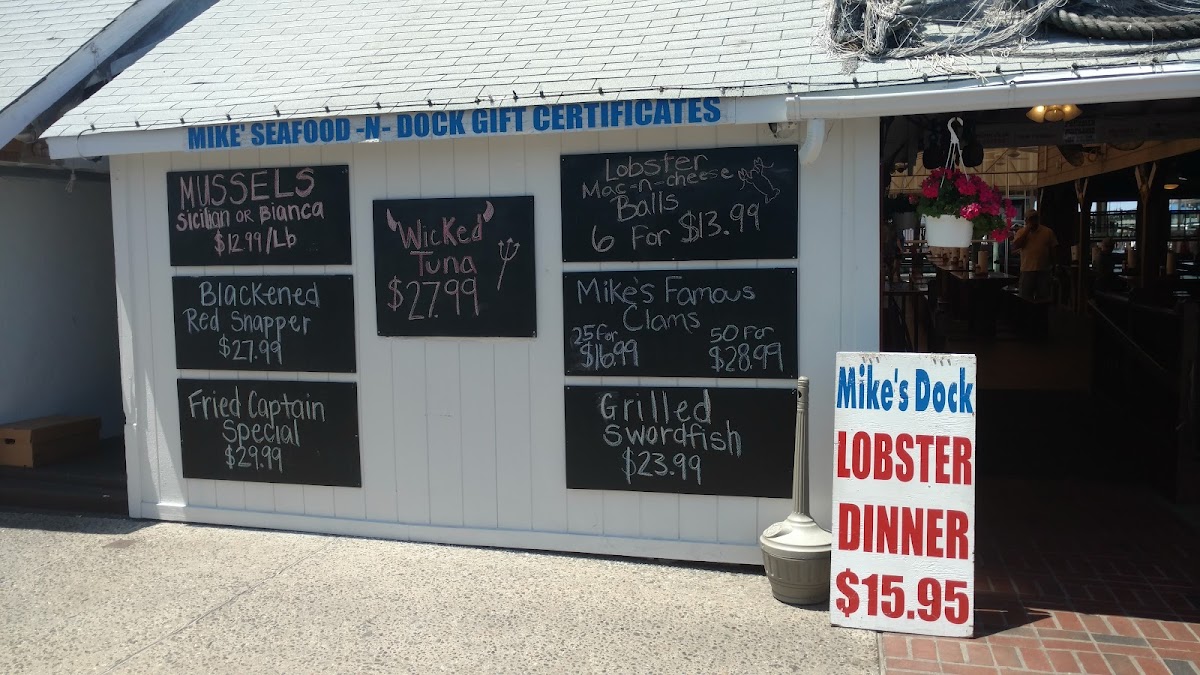 MIKE' SEAFOOD -N- DOCK GIFT CERTIFICATES
MUSSELS
Sicilian OR Bianca
$12.99/Lb
Blackened
Red Snapper
$27.99
Fried Captain
Special
$29.99
Wicked
Tuna
$27.99
Lobster
Mac-n-cheese
Balls
6 For $13.99
Mike's Famous
Clams
25 For 50 For
$16.99 $28.99
Grilled
Swordfish
$23.99
Mike's Dock
LOBSTER
DINNER
$15.95